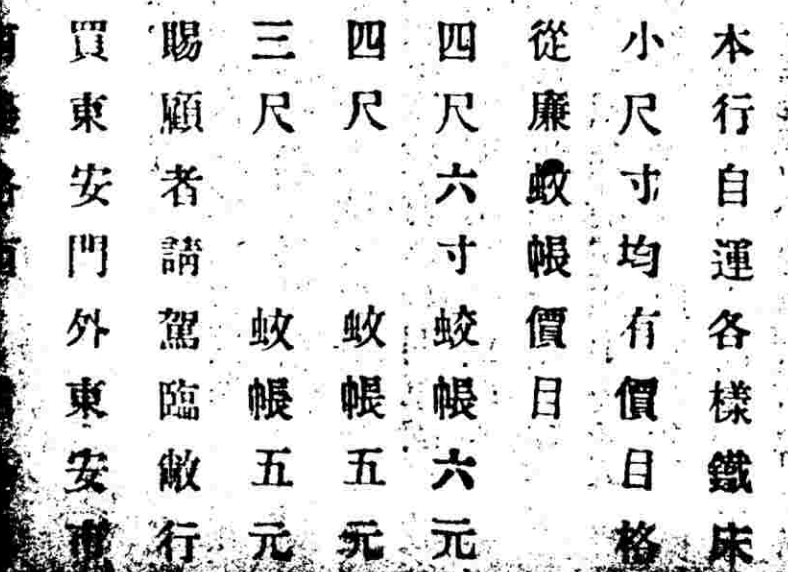 本行自運各樣鐵床
小尺寸均有價目格
從廉蚊帳價目
四尺六寸蛟帳六元
四尺蚊帳五元
三尺蚊帳五元
賜顧者請駕臨敝行
買東安門外東安市